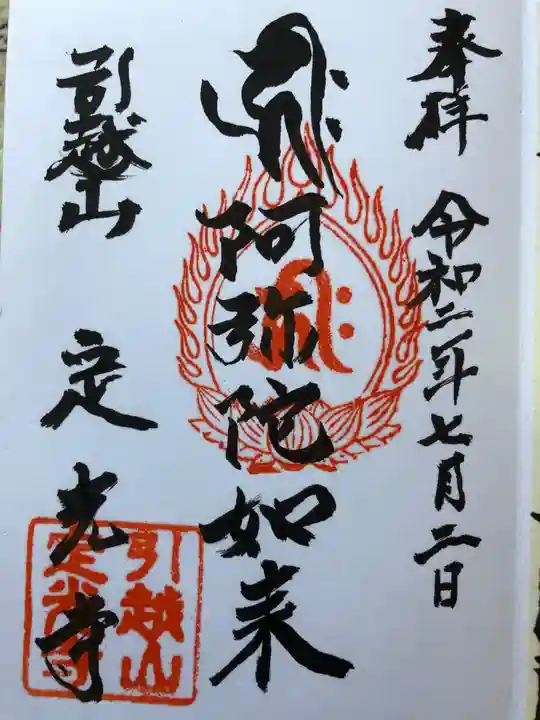 奉拝 令和二年七月二日
𑖮𑖿𑖨𑖱𑖾 阿弥陀如来
引越山 定光寺
𑖮𑖿𑖨𑖱𑖾
引越山
定光寺